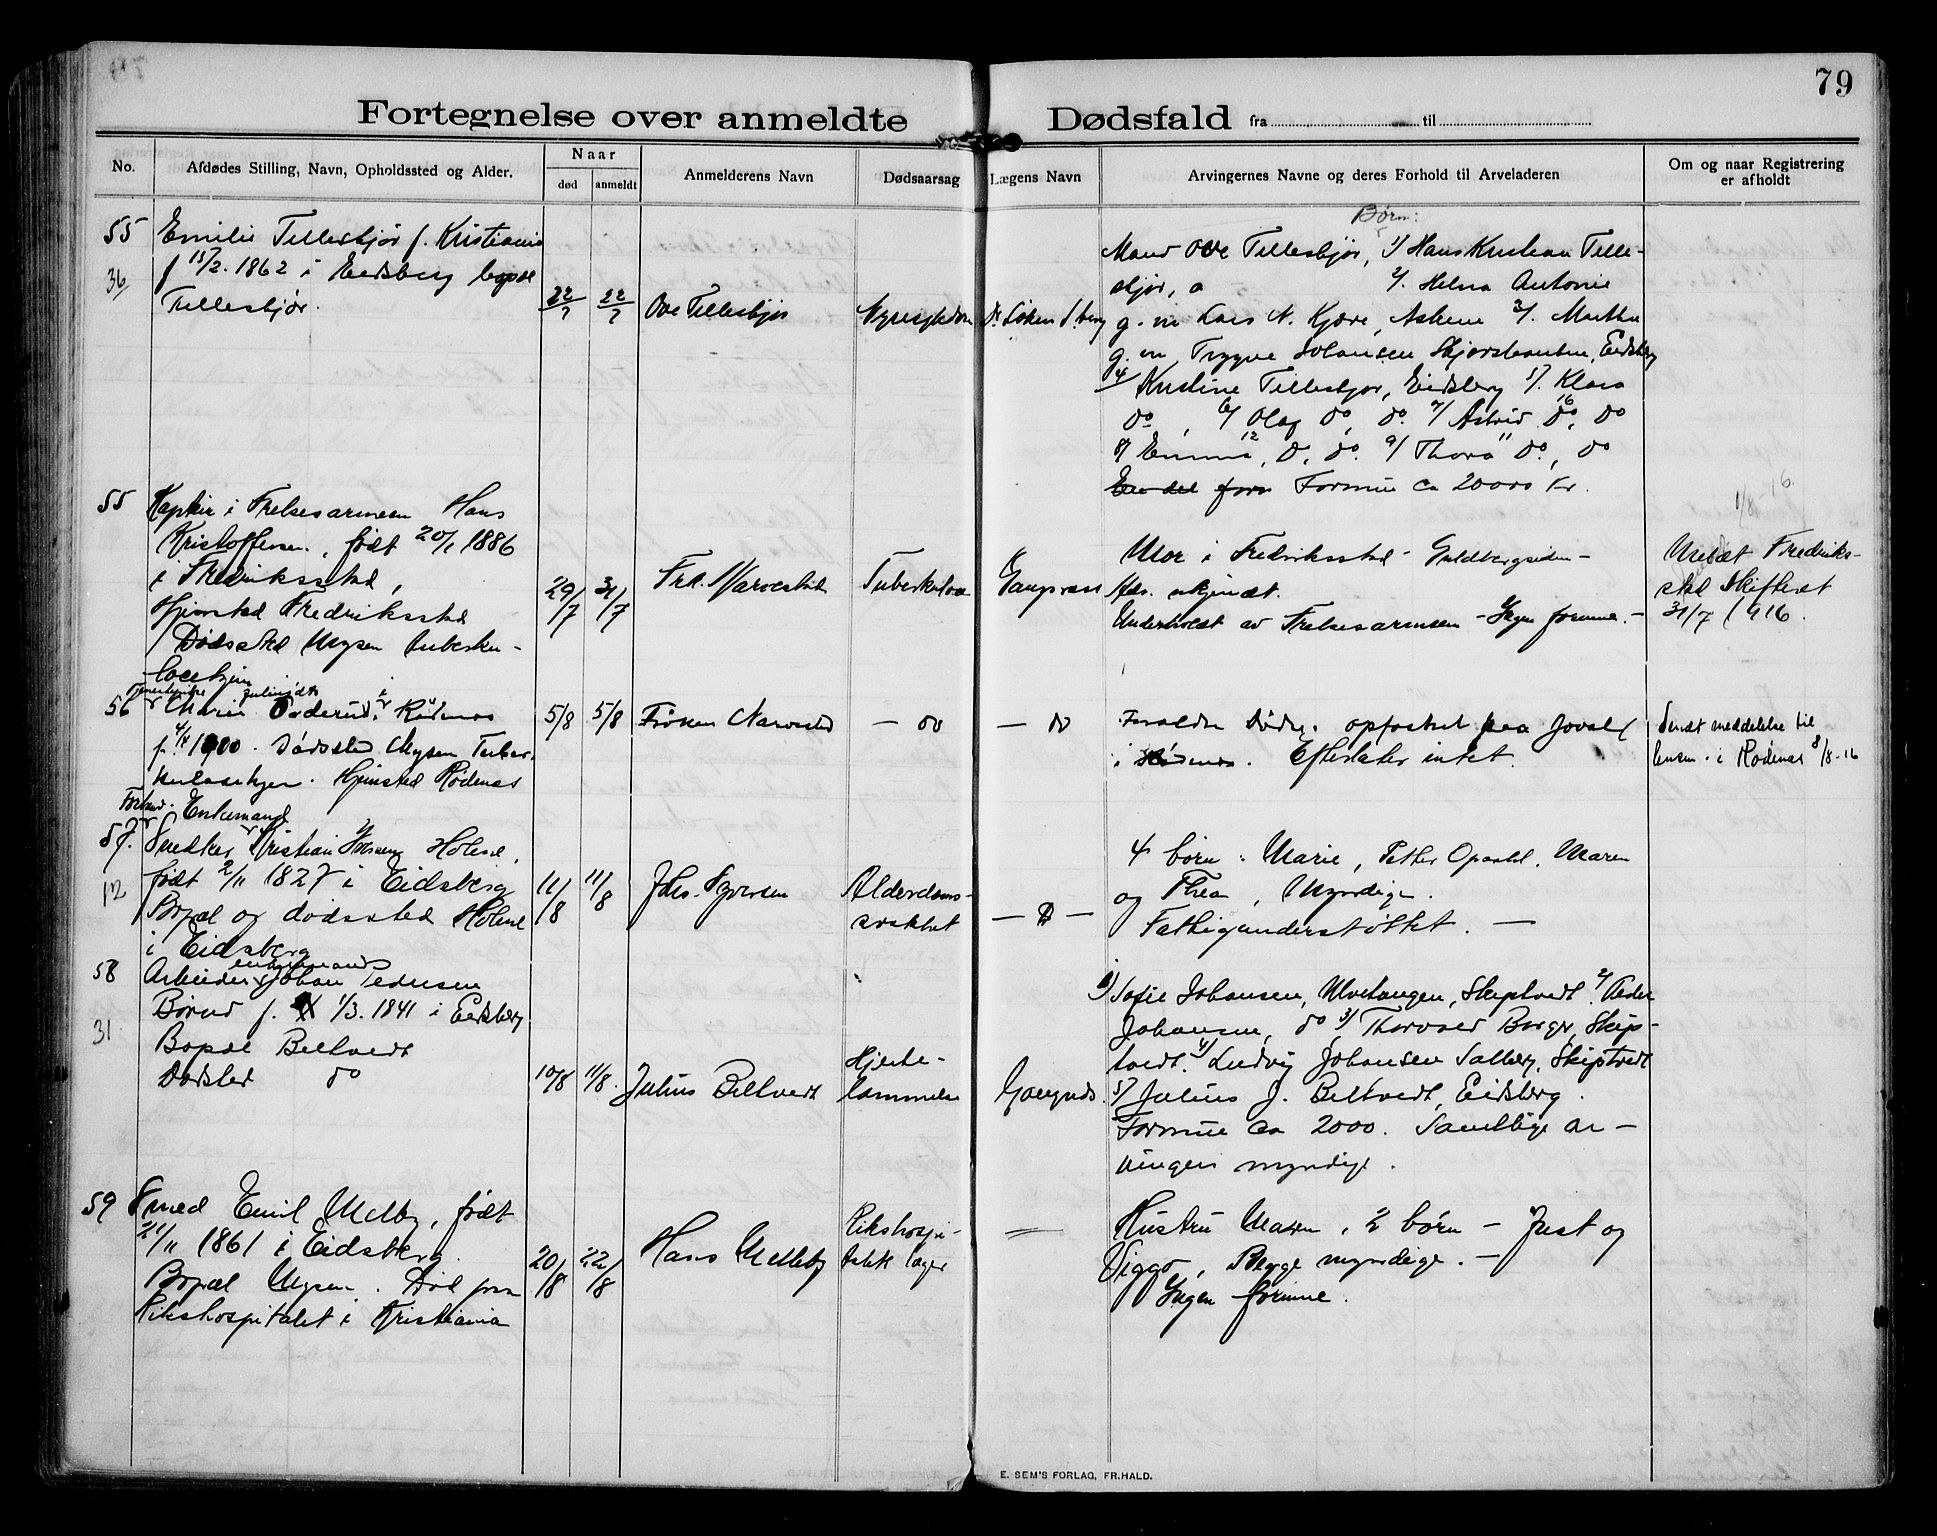 79
Fortegnelse over anmeldte Dødsfald fra til
No.
Afdødes Stilling, Navn, Opholdssted og Alder.
Naar
død
anmeldt
Anmelderens Navn
Dødsaarsag
Lægens Navn
Arvingernes Navne og deres Forhold til Arveladeren
Om og naar Registrering
er afholdt
55
36
Emilie Tillesbjør f. Kristians
f 15/2. 1862 i Eidsberg bopæl
Tillesbjør.
22/7
22/7
Ove Tillesbjør
Dr. Løken
Børn:
Mand Ove Tillesbjør, 1/ Hans Kristian Tille-
sbjør, 2/. Helna Antonie
g. m Lars N. Kjære, Askim 3/. Martha
g. m. Trygve Johansen Eidsberg
4/ Kristine Tillesbjør, Eidsberg 5/. Klara
do, 6/ Olaf do, do. 7/ Astrid 16 do, do
8/ Emma 12, do, do. 9/ Thora 11 do, do
En del form Formue ca 20000 Kr.
55
Kaptein i Frelsesarmeen Hans
Kristoffersen, født 20/1 1886
i Fredriksstad,
Hjemsted Fredriksstad
Dødssted Mysen tuberku-
losehjem
29/7
31/7
Frk. Narvestad
Tuberkulose
Mor i Fredriksstad - Guldbergsiden -
Adr. ukjendt.
Underholdt av Frelsesarmeen - Ingen formue. -
1/8 16.
Meldt Fredriks-
stad Skifteret
31/7 1916.
56
Tjenestepike
Marie Ovderud, i Rødenes
f. 4/4 1900. Dødssted Mysen Tuber-
kulosehjem. Hjemsted Rødenes
5/8
5/8
Frøken Narvestad
— do
— do
Foreldre Døde. opfostret paa Joval
i Rødenes. Efterlater intet.
Sendt meddelelse til
lensm. i Rødenes 8/8-16
57.
112
Forhenv. Enkemand
Snedker Kristian Holene,
født 2/11 1827 i Eidsberg
Bopæl og dødssted Holene
i Eidsberg
11/8
11/8
Johs. Syversen
Alderdoms-
svakhet
— do —
4 børn: Marie, Petter Opsahl, Maren
og Thea, Myndige.
Fattigunderstøttet. —
58
31
enkemand
Arbeider Johan Pedersen
Børud f. 1/3. 1841 i Eidsberg
Bopæl Beltvedt
Dødsted do
10/8
11/8.
Julius Beltvedt
Hjerte-
lammelse
1) Sofie Johansen, Ulvetangen, Skiptvedt. 2/ Peder
Johansen, do 3/ Thorvald Borger, Skip-
tvedt. 4/ Ludvig Johansen Solberg, Skiptvedt
5/ Julius J. Beltvedt, Eidsberg.
Formue ca 2000. Samtlige ar-
vinger myndige.
59
Smed Emil Melby, født
21/11 1861 i Eidsberg.
Bopæl Mysen. Død paa
Rikshospitalet i Kristiania
20/8
22/8
Hans Melleby
Rikshospi-
talets læger
Hustru Maren, 2 børn - Just og
Viggo, Begge myndige. -
Ingen formue.
E. SEM'S FORLAG, FR.HALD.